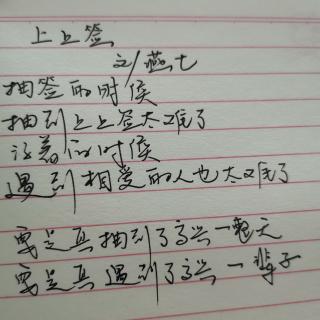 上上签
文/燕七
抽签的时候
抽到上上签太难了
活着的时候
遇到相爱的人也太难了
要是真抽到了高兴一整天
要是真遇到了高兴一辈子